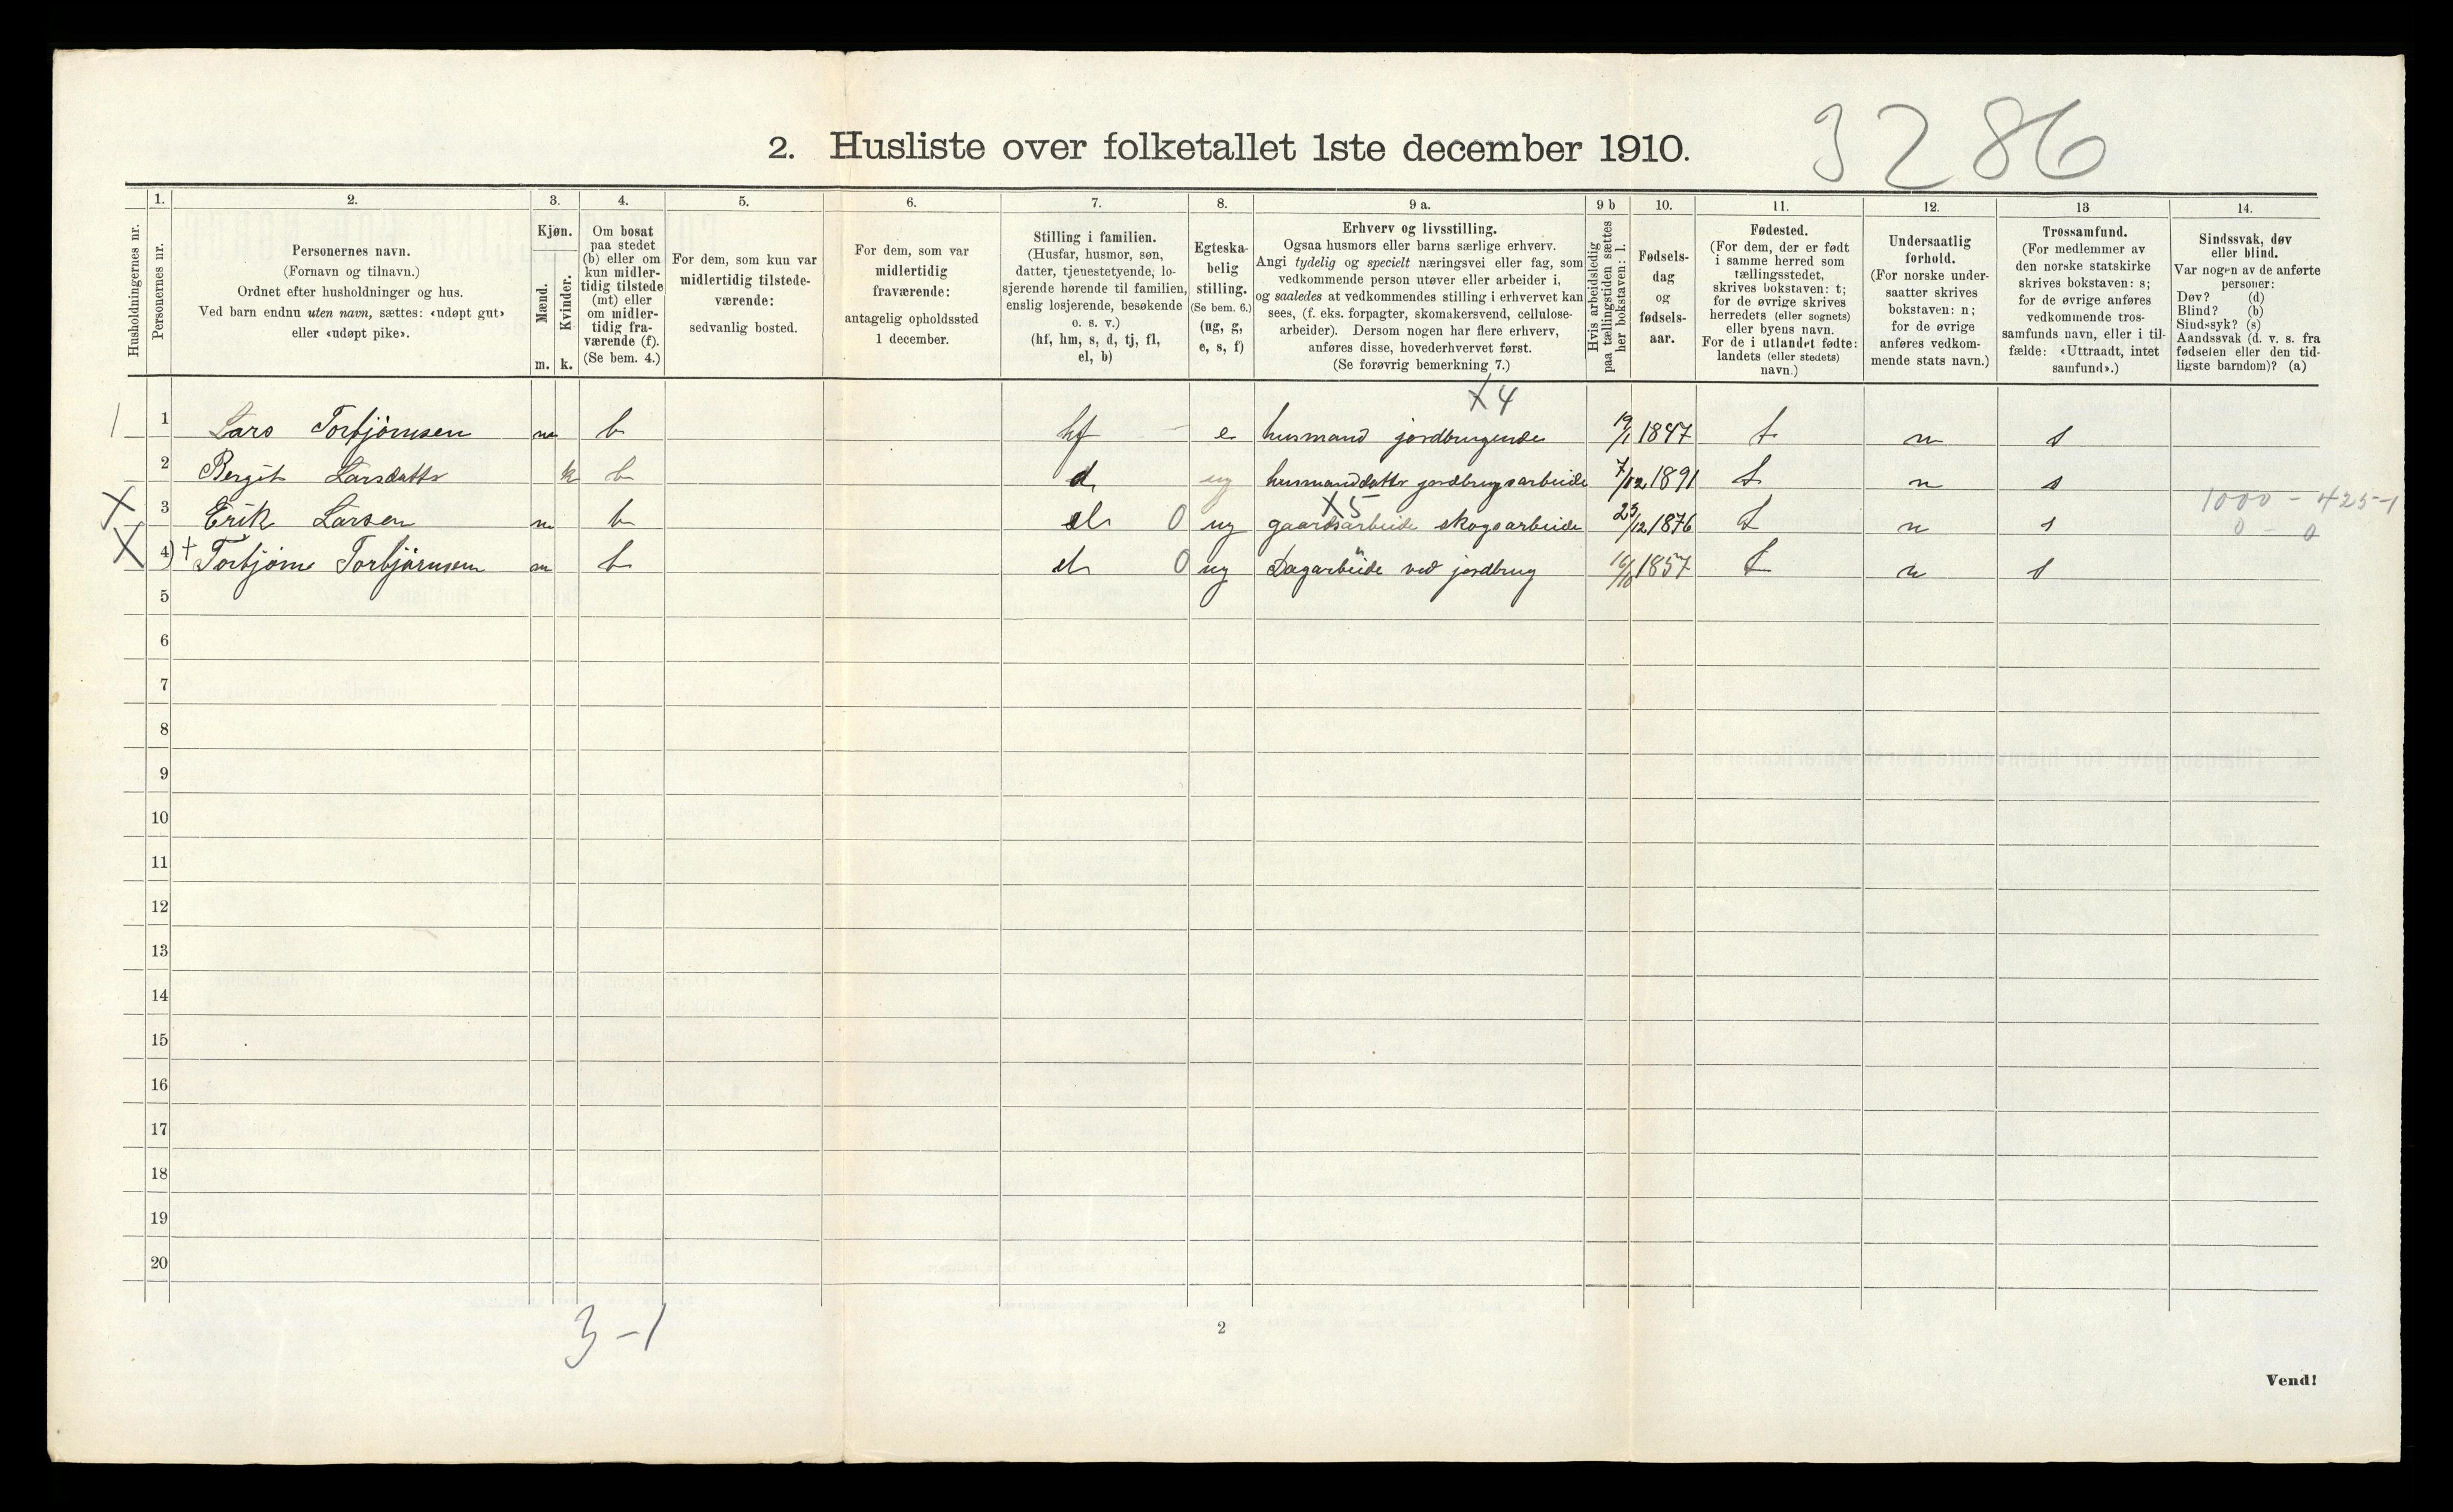 3286
2. Husliste over folketallet 1ste december 1910.
Husholdningernes nr.
1.
Personernes nr.
2.
Personernes navn.
(Fornavn og tilnavn.)
Ordnet efter husholdninger og hus.
Ved barn endnu uten navn, sættes: «udøpt gut»
eller «udøpt pike».
3.
Kjøn.
Mænd.
m.
Kvinder.
k.
4.
Om bosat
paa stedet
(b) eller om
kun midler-
tidig tilstede
(mt) eller
om midler-
tidig fra-
værende (f).
(Se bem. 4.)
5.
For dem, som kun var
midlertidig tilstede-
værende:
sedvanlig bosted.
6.
For dem, som var
midlertidig
fraværende:
antagelig opholdssted
1 december.
7.
Stilling i familien.
(Husfar, husmor, søn,
datter, tjenestetyende, lo-
sjerende hørende til familien,
enslig losjerende, besøkende
o. s. v.)
(hf, hm, s, d, tj, fl,
el, b)
8.
Egteska-
belig
stilling.
(Se bem. 6.)
(ug, g,
e, s, f)
9 a.
Erhverv og livsstilling.
Ogsaa husmors eller barns særlige erhverv.
Angi tydelig og specielt næringsvei eller fag, som
vedkommende person utøver eller arbeider i,
og saaledes at vedkommendes stilling i erhvervet kan
sees, (f. eks. forpagter, skomakersvend, cellulose-
arbeider). Dersom nogen har flere erhverv,
anføres disse, hovederhvervet først.
(Se forøvrig bemerkning 7.)
9 b
Hvis arbeidsledig
paa tællingstiden sættes
her bokstaven: l.
10.
Fødsels-
dag
og
fødsels-
aar.
11.
Fødested.
(For dem, der er født
i samme herred som
tællingsstedet,
skrives bokstaven: t;
for de øvrige skrives
herredets (eller sognets)
eller byens navn.
For de i utlandet fødte:
landets (eller stedets)
navn.)
12.
Undersaatlig
forhold.
(For norske under-
saatter skrives
bokstaven: n;
for de øvrige
anføres vedkom-
mende stats navn.)
13
Trossamfund.
(For medlemmer av
den norske statskirke
skrives bokstaven: s;
for de øvrige anføres
vedkommende tros-
samfunds navn, eller i til-
fælde: «Uttraadt, intet
samfund».)
14.
Sindssvak, døv
eller blind.
Var nogen av de anførte
personer:
Døv? (d)
Blind? (b)
Sindssyk? (s)
Aandssvak (d. v. s. fra
fødselen eller den tid-
ligste barndom)? (a)
X4
1 1 Lars Torbjørnsen m b hf e husmand jordbrugende 19/1 1847 t n s
2 Bergit Larsdatter k b d ug husmanddatter jordbrugsarbeide 7/12 1891 t n s
X5
1000 - 425-1
X 3 Erik Larsen m b el 0 ug gaardsarbeide skogsarbeide 23/12 1876 t n s 0 - 0
X 4) + Torbjørn Torbjørnsen m b el 0 ug Dagarbeide ved jordbrug 16/10 1857 t n s
5
6
7
8
9
10
11
12
13
14
15
16
17
18
19
20
3-1
2
Vend!